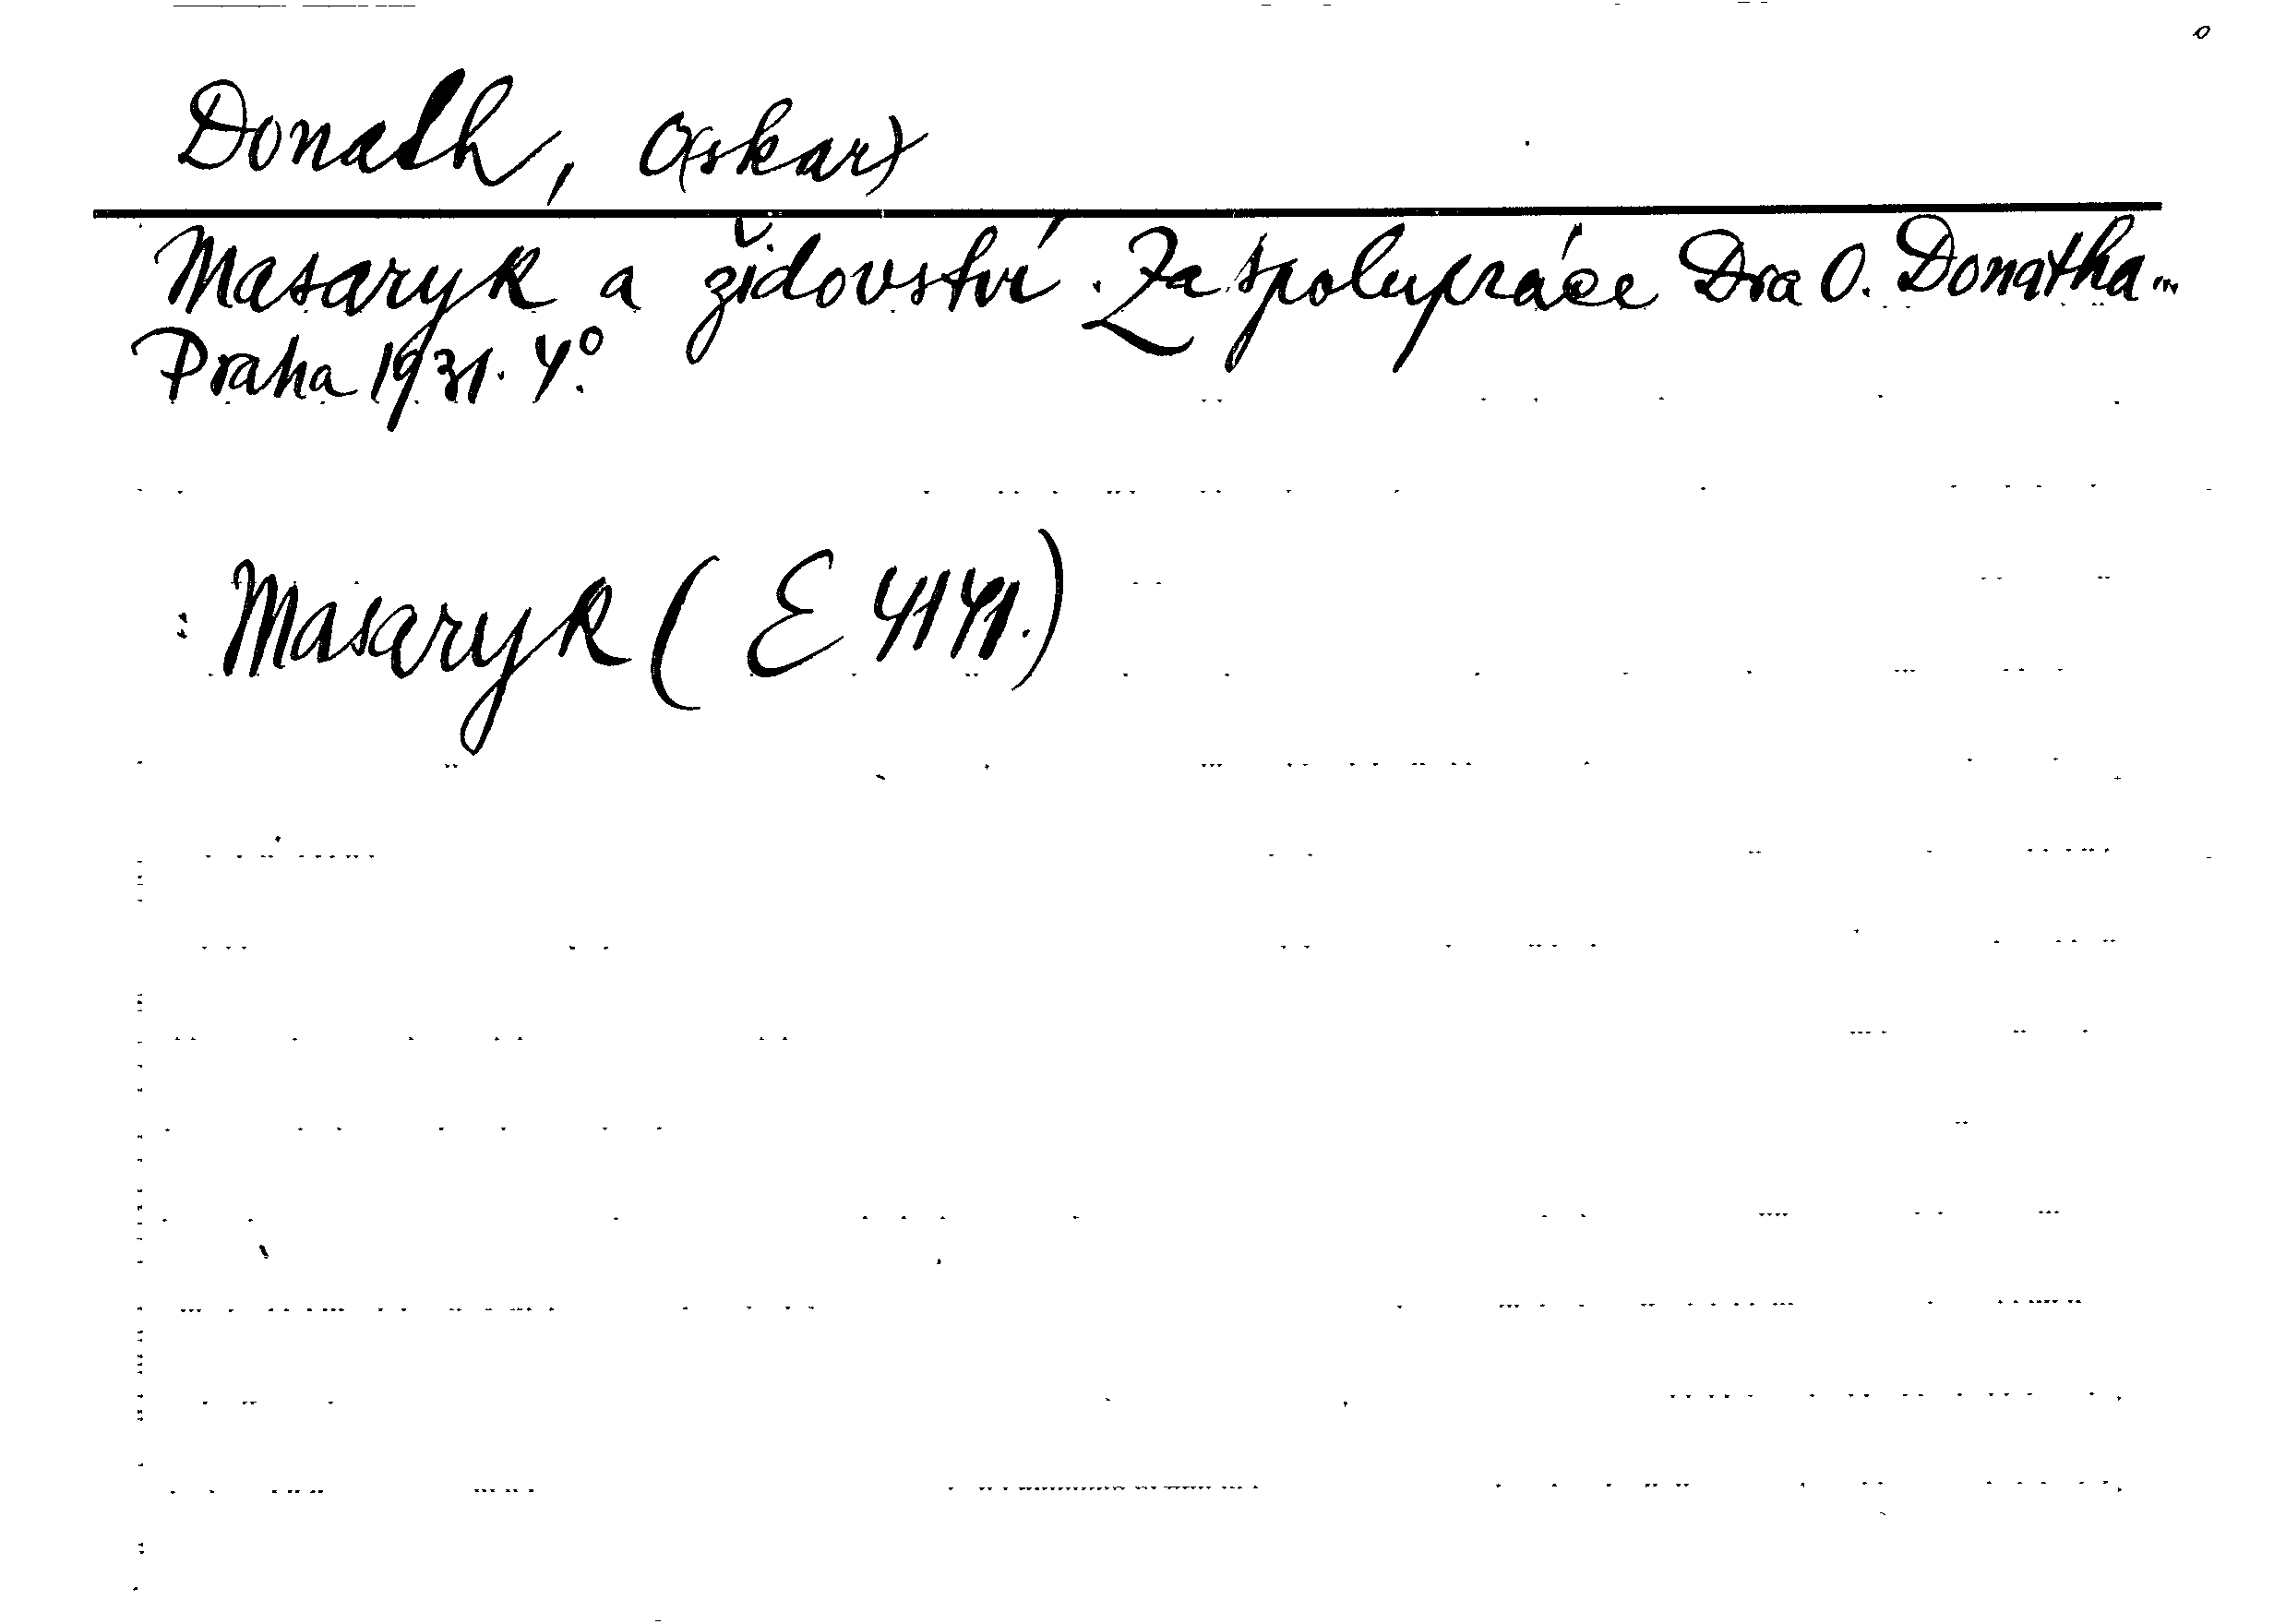 Donath, O(skar)
Masaryk a židovství. Za spolupráce Dra O. Donatha...
Praha 1931. 4°.
: Masaryk ( E 4141.)